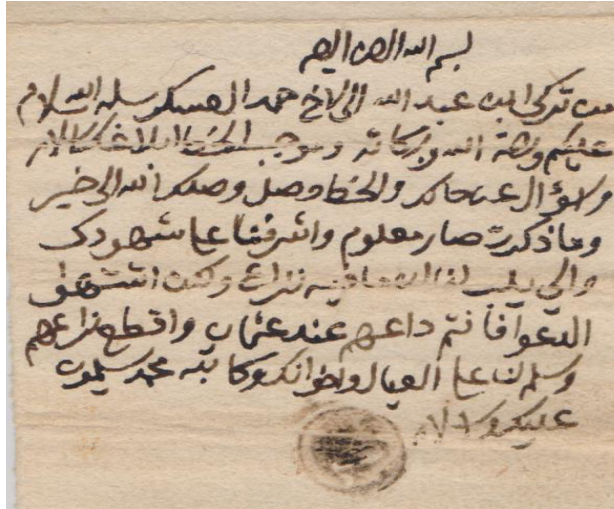 بسم الله الرحمن الرحيم
من تركي ابن عبد الله الى الاخ حمد العسكر سلمه الله السلام
عليكم ورحمة الله وبركاته وموجب الخط ابلاغك السلام
والسؤال عن حالكم والخط وصل وصلكم الله الى خير
وما ذكرت صار معلوم واشرفنا على شهودك
والي
الدعوا فانتم داعهم عند عثمان واقطع نزاعهم
وسلم لنا على العيال واخوانك وكاتبه محمد يسلمون
عليك والسلام